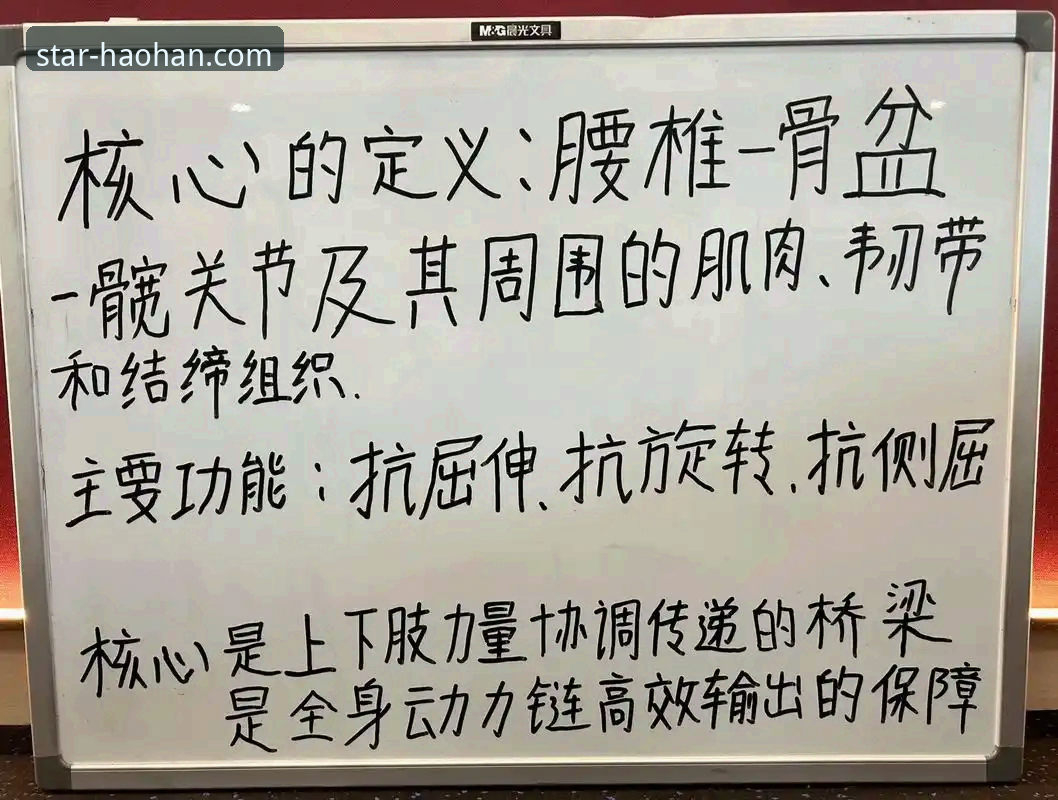 M&G晨光文具
star-haohan.com
核心的定义:腰椎-骨盆
-髋关节及其周围的肌肉、韧带
和结缔组织.
主要功能:抗屈伸、抗旋转、抗侧屈
核心是上下肢力量协调传递的桥梁
是全身动力链高效输出的保障